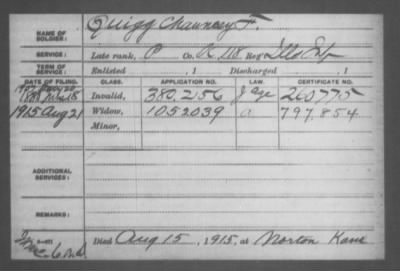 Quigg Chauncey F.
NAME OF SOLDIER:
SERVICE: Late rank, P Co. A 118 Reg't Ills Inf
TERM OF SERVICE: Enlisted , 1 Discharged , 1
DATE OF FILING. CLASS. APPLICATION NO. LAW. CERTIFICATE NO.
Invalid, 380.256 J Age 260775
1915 Aug 21 Widow, 1052039 a 797.854
Minor,
ADDITIONAL SERVICES:
REMARKS:
Died Aug 15, 1915, at Norton Kans